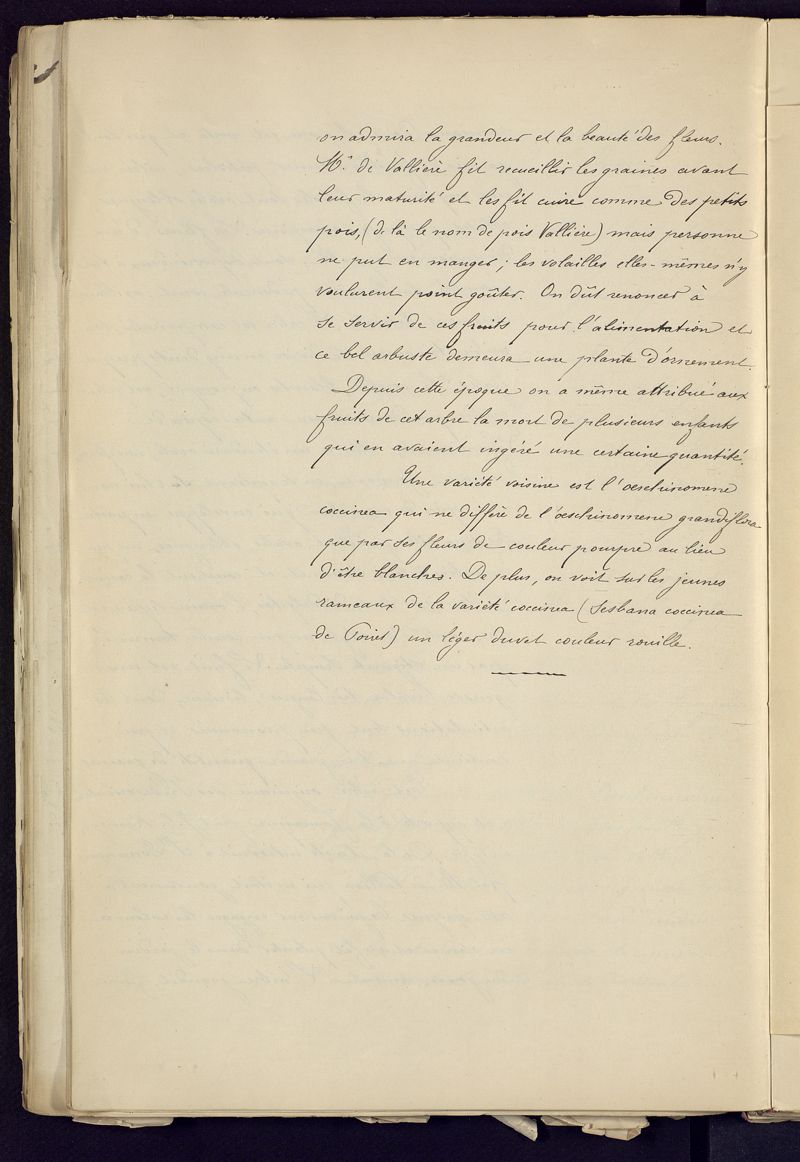 on admira la grandeur et la beauté des fleurs.
Mr. de Vallière fit recueillir les graines avant
leur maturité et les fit cuire comme des petits
pois, (de là le nom de pois Vallière) mais personne
ne put en manger ; les volailles elles-mêmes n'y
voulurent point goûter. On dût renoncer à
se servir de ces fruits pour l'alimentation et
ce bel arbuste demeura une plante d'ornement.
Depuis cette époque on a même attribué aux
fruits de cet arbre la mort de plusieurs enfants
qui en avaient ingéré une certaine quantité.
Une variété voisine est l'oeschinomene
coccinea qui ne diffère de l'oeschinomene grandiflora
que par ses fleurs de couleur pourpre au lieu
d'être blanches. De plus, on voit sur les jeunes
rameaux de la variété coccinea (Sesbana coccinea
de Poiret) un léger duvet couleur rouille.